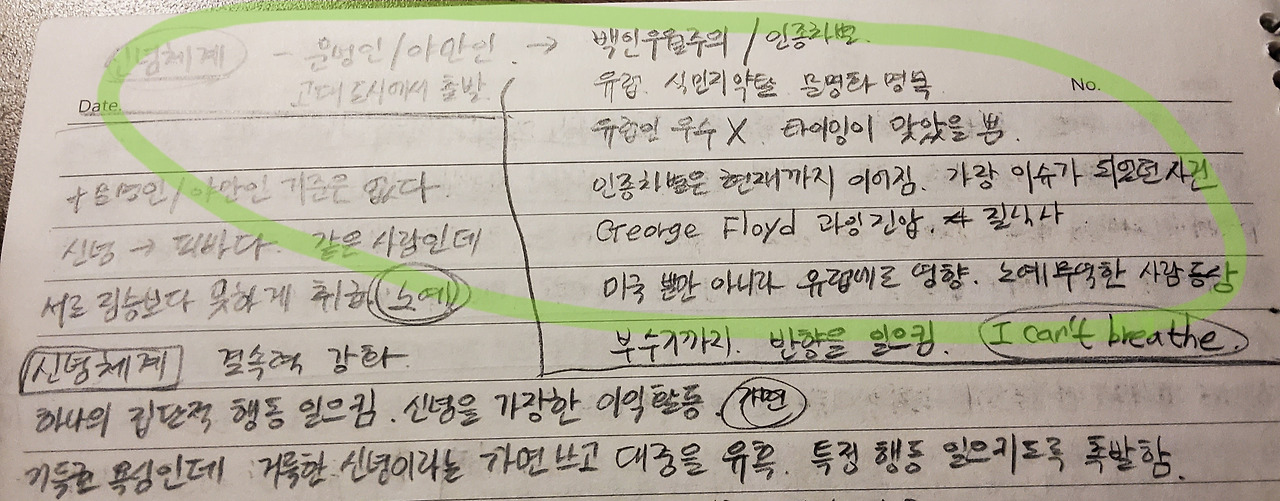 신념체계 - 문명인/야만인 → 백인우월주의 / 인종차별.
고대 도시에서 출발
유럽. 식민지약탈 문명화 명목
Date.
No.
유럽인 우수 X. 타이밍이 맞았을 뿐.
+ 문명인/야만인 기준은 없다.
인종차별은 현재까지 이어짐. 가장 이슈가 되었던 사건
신념 → 피바다. 같은 사람인데
George Floyd 과잉진압. 질식사
서로 짐승보다 못하게 취하 노예
미국 뿐만 아니라 유럽에도 영향. 노예무역한 사람 동상
부수기까지. 반향을 일으킴. I can't breathe.
신념체계 결속력 강화.
하나의 집단적 행동 일으킴. 신념을 가장한 이익활동. 가면
기득권 욕심인데 거룩한 신념이라는 가면쓰고 대중을 유혹. 특정 행동 일으키도록 폭발함.